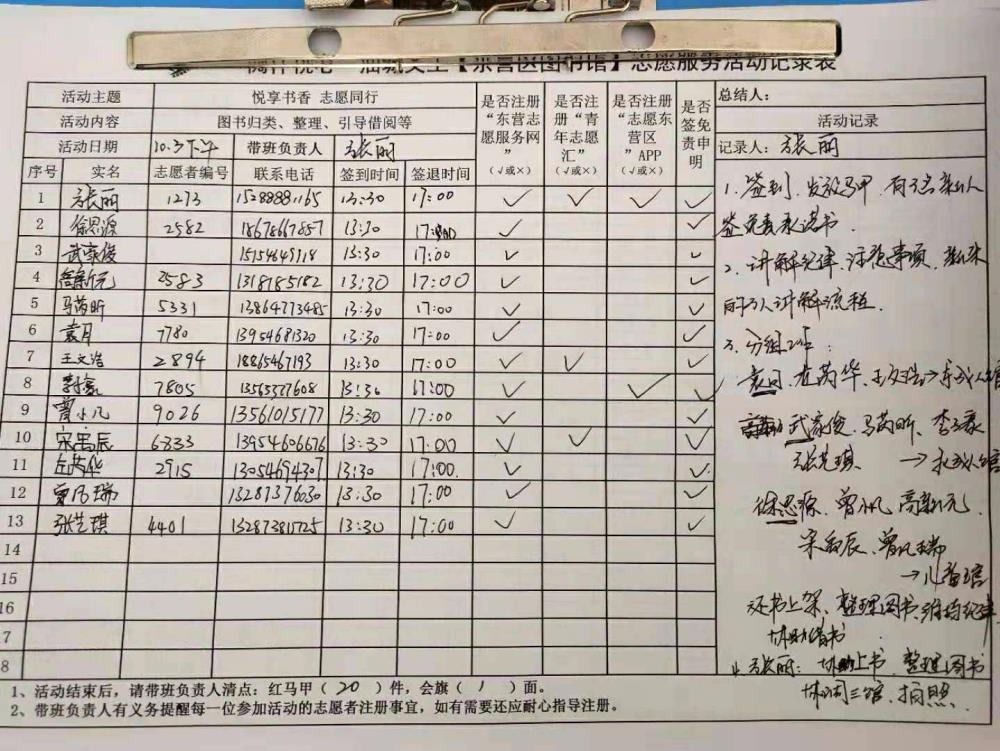 油城义工【东营区图书馆】志愿服务活动记录表
活动主题 悦享书香 志愿同行 是否注册“东营志愿服务网”（√或×） 是否注册“青年志愿汇”（√或×） 是否注册“志愿东营区”APP（√或×） 是否签免责申明 总结人：
活动内容 图书归类、整理、引导借阅等 活动记录
活动日期 10.3下午 带班负责人 张丽 记录人：张丽
序号 实名 志愿者编号 联系电话 签到时间 签退时间
1 张丽 1273 15288881165 13:30 17:00 √ √ √ √
2 徐思源 2582 18678667857 13:30 17:00 √ √
3 武家俊 15154649118 13:30 17:00 √ √
4 高新元 2583 13181785182 13:30 17:00 √ √
5 马芮昕 5331 13864773485 13:30 17:00 √ √
6 袁月 7780 13954681320 13:30 17:00 √ √
7 王文浩 2894 18865467193 13:30 17:00 √ √ √
8 7805 13563377608 13:30 17:00 √ √ √
9 曾小凡 9026 13561015177 13:30 17:00 √ √
10 宋禹辰 6833 13954606676 13:30 17:00 √ √ √
11 左芮华 2915 13054694307 13:30 17:00 √ √
12 曾凡瑞 13287376030 13:30 17:00 √ √
13 张艺琪 4401 13287381725 13:30 17:00 √ √
14
15
16
17
18
1、签到、发放马甲、
签免责承诺书.
2、讲解纪律、注意事项、
讲解流程.
3、分组
袁月、左芮华、王文浩→
武家俊、马芮昕、
张艺琪 →
徐思源、曾小凡、高新元、
宋禹辰、曾凡瑞
→儿童馆
还书上架、整理图书、维持纪律、
协助借书
4、张丽：协助上书、整理图书
协调三馆、拍照.
1、活动结束后，请带班负责人清点：红马甲（20）件，会旗（1）面。
2、带班负责人有义务提醒每一位参加活动的志愿者注册事宜，如有需要还应耐心指导注册。